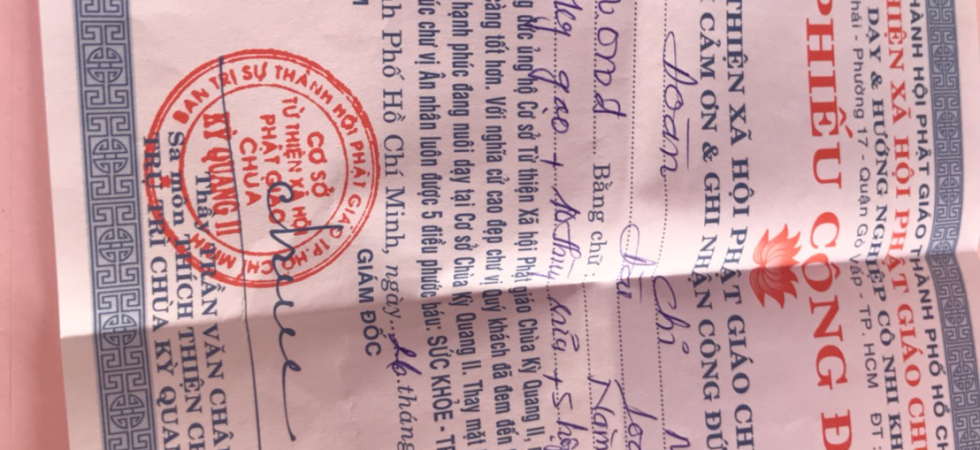 THÀNH HỘI PHẬT GIÁO THÀNH PHỐ HỒ CH
THIỆN XÃ HỘI PHẬT GIÁO CH
DẠY & HƯỚNG NGHIỆP CÔ NHI KH
hái - Phường 17 - Quận Gò Vấp - TP. HCM ĐT :
PHIẾU CÔNG Đ
THIỆN XÃ HỘI PHẬT GIÁO CH
CẢM ƠN & GHI NHẬN CÔNG ĐỨ
Đoàn Chi
Bằng chữ : Năm
gạo +
g đức ủng hộ Cơ sở Từ thiện Xã hội Phật giáo Chùa Kỳ Quang II,
càng tốt hơn. Với nghĩa cử cao đẹp chư vị Quý khách đã đem đến
hạnh phúc đang nuôi dạy tại Cơ sở Chùa Kỳ Quang II. Thay mặt
úc chư vị Ân nhân luôn được 5 điều phước báu: SỨC KHỎE - T
nh Phố Hồ Chí Minh, ngày tháng
GIÁM ĐỐC
BAN TRỊ SỰ THÀNH HỘI PHẬT GIÁO TP. HỒ CHÍ MINH
CƠ SỞ
TỪ THIỆN XÃ HỘI
PHẬT GIÁO
CHÙA
KỲ QUANG II
Thầy TRẦN VĂN CHÂ
Sa môn THÍCH THIỆN CH
TRỤ TRÌ CHÙA KỲ QUA